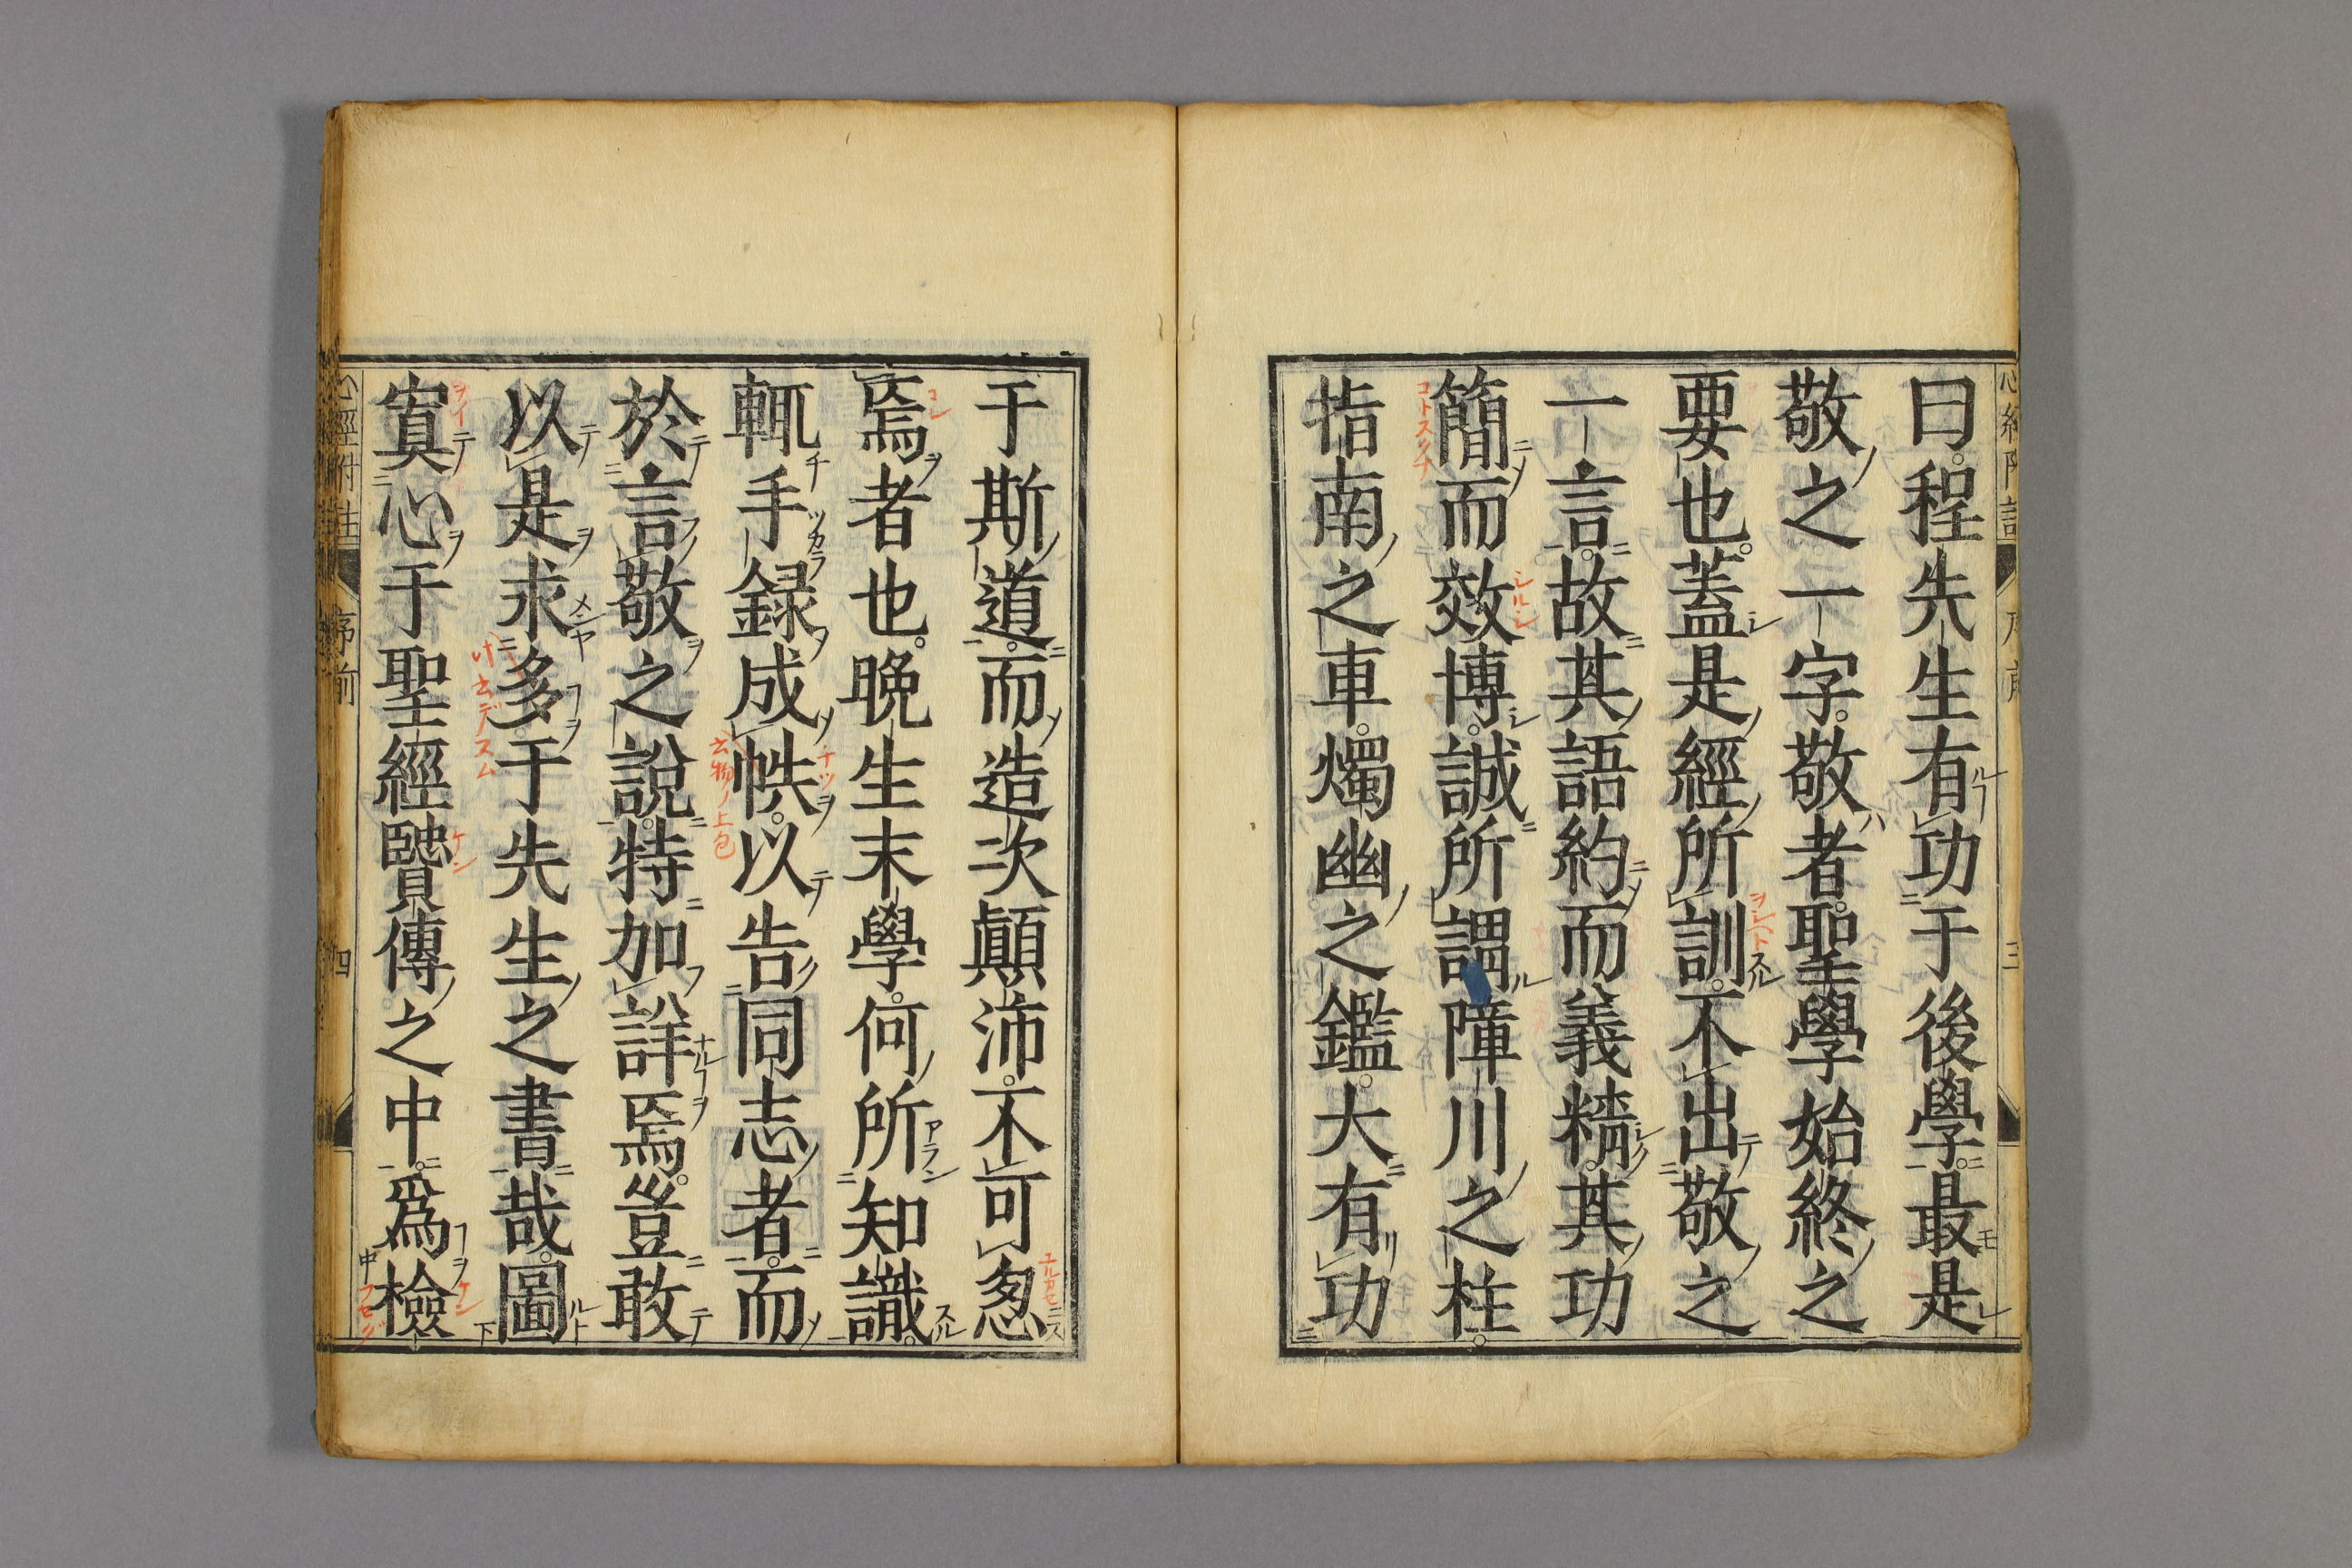 曰程先生有功于後學最是
敬之一字敬者聖學始終之
要也蓋是經所訓不出敬之
一言故其語約而義精其功
簡而效博誠所謂障川之柱
指南之車燭幽之鑑大有功
于斯道而造次顛沛不可忽
焉者也晚生末學何所知識
輒手録成帙以告同志者而
於言敬之說特加詳焉豈敢
以是求多于先生之書哉圖
寘心于聖經賢傳之中爲檢
心經附註
序前
四